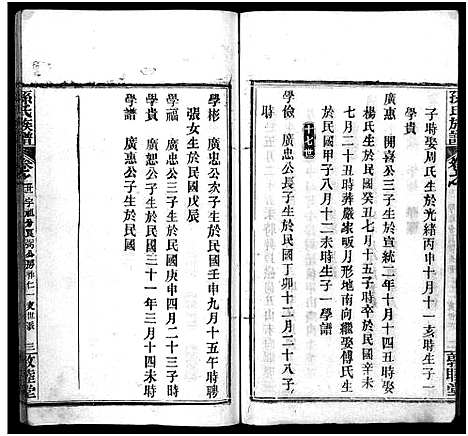 孫氏族譜
子時娶周氏生於光緒丙申十月十一亥時生子一
學貴
廣惠 開喜公三子生於宣統二年十月十四丑時娶
楊氏生於民國癸丑七月十五子時卒於民國
七月二十丑時葬嚴家畈月形地南向繼娶傅氏生
於民國甲子八月十二未時生子一學譜
十七世
學儉 廣忠公長子生於民國丁卯十二月二八子
學彬 廣忠公次子生於民國壬申九月十五午時聘
張女生於民國戊辰
學福 廣忠公三子生於民國庚申四月二十三子時
學貴 廣恕公子生於民國三十一年三月十四未時
學譜 廣惠公子生於民國
孫氏族譜
三
敦睦堂